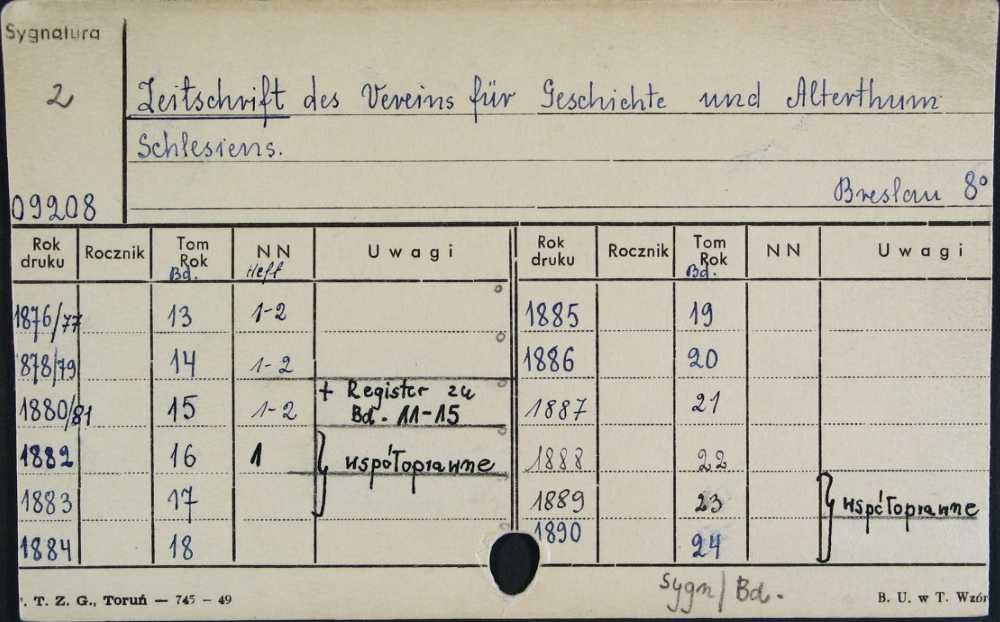 Sygnatura
2
Zeitschrift des Vereins für Geschichte und Alterthum
Schlesiens.
Breslau 8°
09208
Rok druku Rocznik Tom Rok Bd. NN Heft Uwagi Rok druku Rocznik Tom Rok Bd. NN Uwagi
1876/77 13 1-2 1885 19
878/79 14 1-2 1886 20
1880/81 15 1-2 + Register zu Bd. 11-15 1887 21
1882 16 1 współoprawne 1888 22
1883 17 1889 23 współoprawne
1884 18 1890 24
sygn/Bd.
. T. Z. G., Toruń — 745 - 49 B. U. w T. Wzór